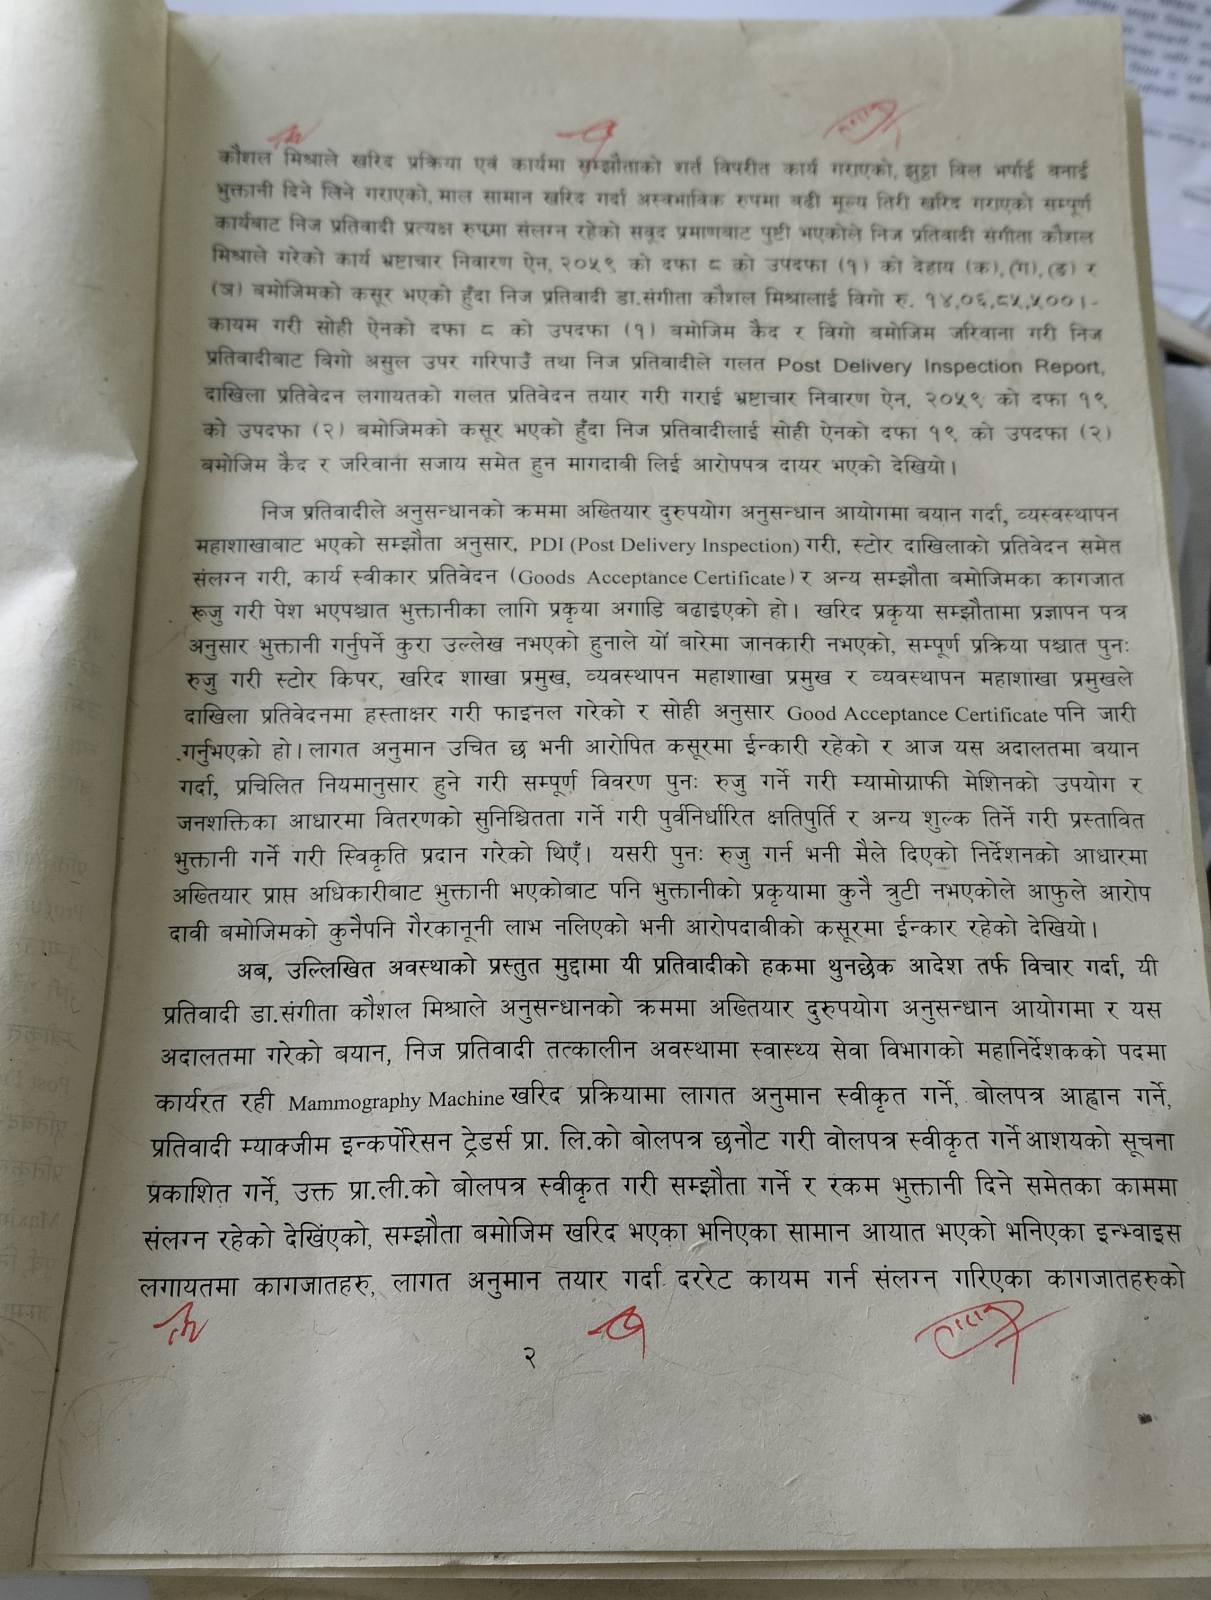 कौशल मिश्राले खरिद प्रक्रिया एवं कार्यमा सम्झौताको शर्त विपरीत कार्य गराएको, झुठ्ठा बिल भर्पाई बनाई
भुक्तानी दिने लिने गराएको, माल सामान खरिद गर्दा अस्वभाविक रुपमा बढी मूल्य तिरी खरिद गराएको सम्पूर्ण
कार्यबाट निज प्रतिवादी प्रत्यक्ष रुपमा संलग्न रहेको सवूद प्रमाणबाट पुष्टी भएकोले निज प्रतिवादी संगीता कौशल
मिश्राले गरेको कार्य भ्रष्टाचार निवारण ऐन, २०५९ को दफा ८ को उपदफा (१) को देहाय (क), (ग), (ङ) र
(ञ) बमोजिमको कसूर भएको हुँदा निज प्रतिवादी डा.संगीता कौशल मिश्रालाई विगो रु. १४,०६,८५,५००।-
कायम गरी सोही ऐनको दफा ८ को उपदफा (१) बमोजिम कैद र विगो बमोजिम जरिवाना गरी निज
प्रतिवादीबाट बिगो असुल उपर गरिपाउँ तथा निज प्रतिवादीले गलत Post Delivery Inspection Report,
दाखिला प्रतिवेदन लगायतको गलत प्रतिवेदन तयार गरी गराई भ्रष्टाचार निवारण ऐन, २०५९ को दफा १९
को उपदफा (२) बमोजिमको कसूर भएको हुँदा निज प्रतिवादीलाई सोही ऐनको दफा १९ को उपदफा (२)
बमोजिम कैद र जरिवाना सजाय समेत हुन मागदाबी लिई आरोपपत्र दायर भएको देखियो।
निज प्रतिवादीले अनुसन्धानको क्रममा अख्तियार दुरुपयोग अनुसन्धान आयोगमा बयान गर्दा, व्यस्वस्थापन
महाशाखाबाट भएको सम्झौता अनुसार, PDI (Post Delivery Inspection) गरी, स्टोर दाखिलाको प्रतिवेदन समेत
संलग्न गरी, कार्य स्वीकार प्रतिवेदन (Goods Acceptance Certificate) र अन्य सम्झौता बमोजिमका कागजात
रूजु गरी पेश भएपश्चात भुक्तानीका लागि प्रकृया अगाडि बढाइएको हो। खरिद प्रकृया सम्झौतामा प्रज्ञापन पत्र
अनुसार भुक्तानी गर्नुपर्ने कुरा उल्लेख नभएको हुनाले यो बारेमा जानकारी नभएको, सम्पूर्ण प्रक्रिया पश्चात पुनः
रुजु गरी स्टोर किपर, खरिद शाखा प्रमुख, व्यवस्थापन महाशाखा प्रमुख र व्यवस्थापन महाशाखा प्रमुखले
दाखिला प्रतिवेदनमा हस्ताक्षर गरी फाइनल गरेको र सोही अनुसार Good Acceptance Certificate पनि जारी
गर्नुभएको हो। लागत अनुमान उचित छ भनी आरोपित कसूरमा ईन्कारी रहेको र आज यस अदालतमा बयान
गर्दा, प्रचिलित नियमानुसार हुने गरी सम्पूर्ण विवरण पुनः रुजु गर्ने गरी म्यामोग्राफी मेशिनको उपयोग र
जनशक्तिका आधारमा वितरणको सुनिश्चितता गर्ने गरी पुर्वनिर्धारित क्षतिपुर्ति र अन्य शुल्क तिर्ने गरी प्रस्तावित
भुक्तानी गर्ने गरी स्विकृति प्रदान गरेको थिएँ। यसरी पुनः रुजु गर्न भनी मैले दिएको निर्देशनको आधारमा
अख्तियार प्राप्त अधिकारीबाट भुक्तानी भएकोबाट पनि भुक्तानीको प्रकृयामा कुनै त्रुटी नभएकोले आफुले आरोप
दावी बमोजिमको कुनैपनि गैरकानूनी लाभ नलिएको भनी आरोपदाबीको कसूरमा ईन्कार रहेको देखियो।
अब, उल्लिखित अवस्थाको प्रस्तुत मुद्दामा यी प्रतिवादीको हकमा थुनछेक आदेश तर्फ विचार गर्दा, यी
प्रतिवादी डा.संगीता कौशल मिश्राले अनुसन्धानको क्रममा अख्तियार दुरुपयोग अनुसन्धान आयोगमा र यस
अदालतमा गरेको बयान, निज प्रतिवादी तत्कालीन अवस्थामा स्वास्थ्य सेवा विभागको महानिर्देशकको पदमा
कार्यरत रही Mammography Machine खरिद प्रक्रियामा लागत अनुमान स्वीकृत गर्ने, बोलपत्र आह्वान गर्ने,
प्रतिवादी म्याक्जीम इन्कर्पोरेसन ट्रेडर्स प्रा. लि.को बोलपत्र छनौट गरी वोलपत्र स्वीकृत गर्ने आशयको सूचना
प्रकाशित गर्ने, उक्त प्रा.ली.को बोलपत्र स्वीकृत गरी सम्झौता गर्ने र रकम भुक्तानी दिने समेतका काममा
संलग्न रहेको देखिंएको, सम्झौता बमोजिम खरिद भएका भनिएका सामान आयात भएको भनिएका इन्भ्वाइस
लगायतमा कागजातहरु, लागत अनुमान तयार गर्दा दररेट कायम गर्न संलग्न गरिएका कागजातहरुको
२